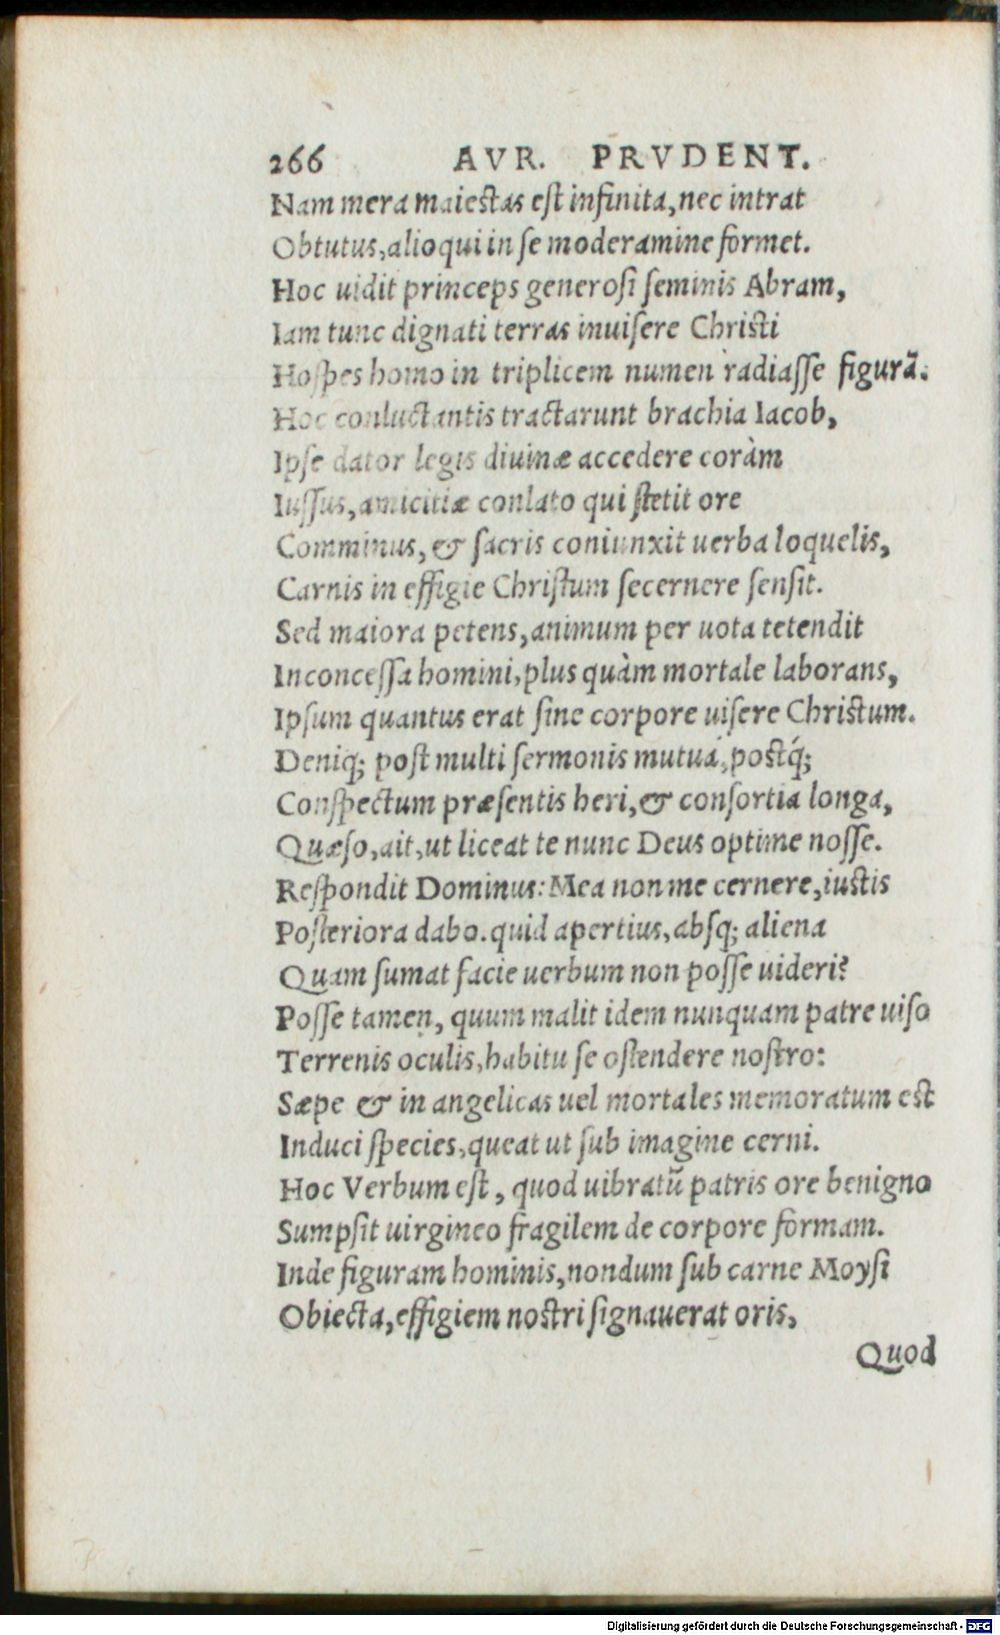 266 AVR. PRVDENT.
Nam mera maiestas est infinita, nec intrat
Obtutus, alioqui in se moderamine formet.
Hoc uidit princeps generosi seminis Abram,
Iam tunc dignati terras inuisere Christi
Hospes homo in triplicem numen radiasse figurā.
Hoc conluctantis tractarunt brachia Iacob,
Ipse dator legis diuinæ accedere coràm
Iussus, amicitiæ conlato qui stetit ore
Comminus, & sacris coniunxit uerba loquelis,
Carnis in effigie Christum secernere sensit.
Sed maiora petens, animum per uota tetendit
Inconcessa homini, plus quàm mortale laborans,
Ipsum quantus erat sine corpore uisere Christum.
Deniq; post multi sermonis mutua, postq́;
Conspectum præsentis heri, & consortia longa,
Quæso, ait, ut liceat te nunc Deus optime nosse.
Respondit Dominus: Mea non me cernere, iustis
Posteriora dabo. quid apertius, absq; aliena
Quam sumat facie uerbum non posse uideri?
Posse tamen, quum malit idem nunquam patre uiso
Terrenis oculis, habitu se ostendere nostro:
Sæpe & in angelicas uel mortales memoratum est
Induci species, queat ut sub imagine cerni.
Hoc Verbum est, quod uibratū patris ore benigno
Sumpsit uirgineo fragilem de corpore formam.
Inde figuram hominis, nondum sub carne Moysi
Obiecta, effigiem nostri signauerat oris,
Quod
Digitalisierung gefördert durch die Deutsche Forschungsgemeinschaft - DFG